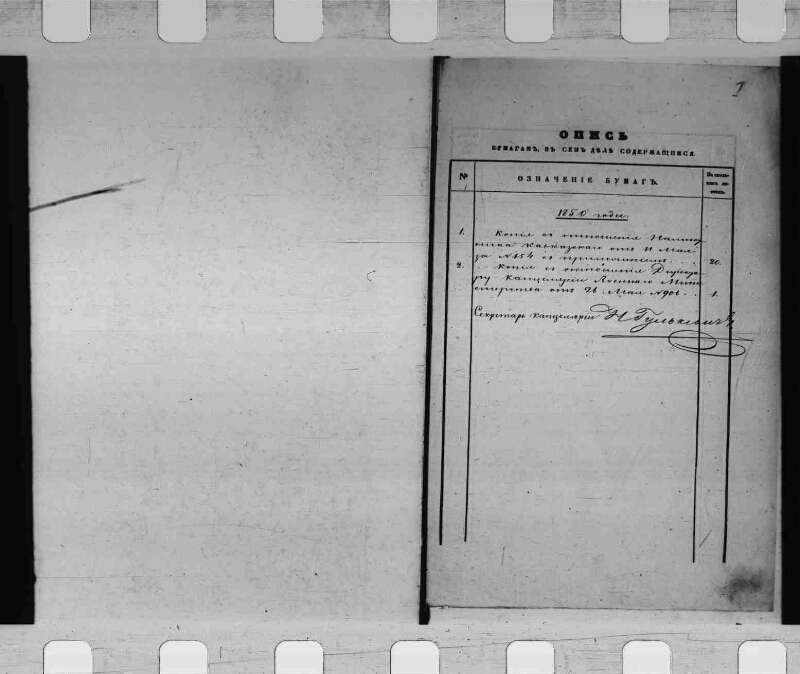 I
ОПИСЬ
БУМАГАМЪ, ВЪ СЕМЪ ДѢЛѢ СОДЕРЖАЩИМСЯ.
№
ОЗНАЧЕНІЕ БУМАГЪ.
1850 года.
1. Копія съ отношенія Намѣст
ника Кавказскаго отъ 11 Мая
за № 154 съ приложеніемъ. . . 20.
2. Копія съ отношенія Директо
ру Канцеляріи Военнаго Мини
стерства отъ 26 Мая № 906. . . 1.
Секретарь Канцеляріи Н Гулькевичъ